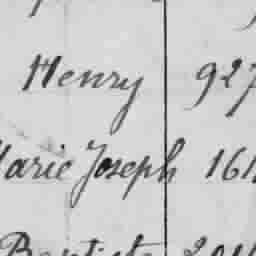 Henry 927
Marie Joseph 161
Baptiste 204